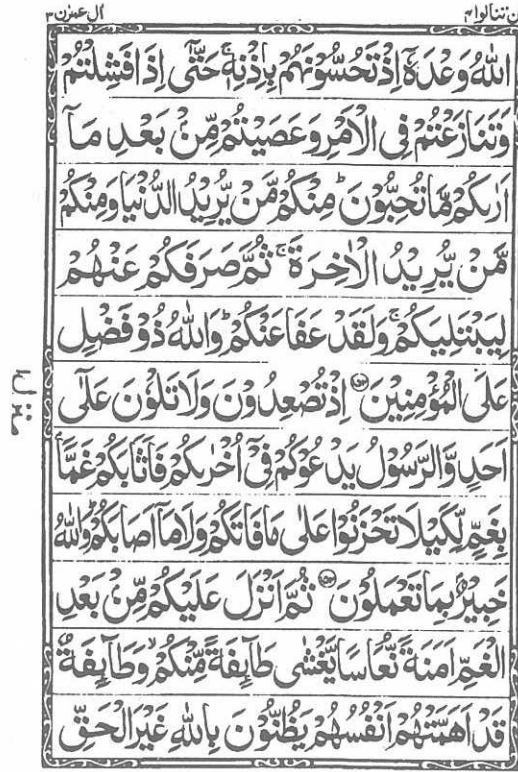 ن تنالوا ۴ ال عمرٰن ۳
اللّٰهُ وَعْدَهٗۤ اِذْ تَحُسُّوْنَهُمْ بِاِذْنِهٖ ۚ حَتّٰۤى اِذَا فَشِلْتُمْ
وَتَنَازَعْتُمْ فِى الْاَمْرِ وَعَصَيْتُمْ مِّنْۢ بَعْدِ مَاۤ
اَرٰىكُمْ مَّا تُحِبُّوْنَ ؕ مِنْكُمْ مَّنْ يُّرِيْدُ الدُّنْيَا وَمِنْكُمْ
مَّنْ يُّرِيْدُ الْاٰخِرَةَ ۚ ثُمَّ صَرَفَكُمْ عَنْهُمْ
لِيَبْتَلِيَكُمْ ۚ وَلَقَدْ عَفَا عَنْكُمْ ؕ وَاللّٰهُ ذُوْ فَضْلٍ
عَلَى الْمُؤْمِنِيْنَ ۝۱۵۲ اِذْ تُصْعِدُوْنَ وَلَا تَلْوٗنَ عَلٰٓى
اَحَدٍ وَّالرَّسُوْلُ يَدْعُوْكُمْ فِىْۤ اُخْرٰىكُمْ فَاَثَابَكُمْ غَمًّاۢ
بِغَمٍّ لِّكَيْلَا تَحْزَنُوْا عَلٰى مَا فَاتَكُمْ وَلَا مَاۤ اَصَابَكُمْ ؕ وَاللّٰهُ
خَبِيْرٌۢ بِمَا تَعْمَلُوْنَ ۝۱۵۳ ثُمَّ اَنْزَلَ عَلَيْكُمْ مِّنْۢ بَعْدِ
الْغَمِّ اَمَنَةً نُّعَاسًا يَّغْشٰى طَآئِفَةً مِّنْكُمْ ۙ وَطَآئِفَةٌ
قَدْ اَهَمَّتْهُمْ اَنْفُسُهُمْ يَظُنُّوْنَ بِاللّٰهِ غَيْرَ الْحَقِّ
منزل ۱